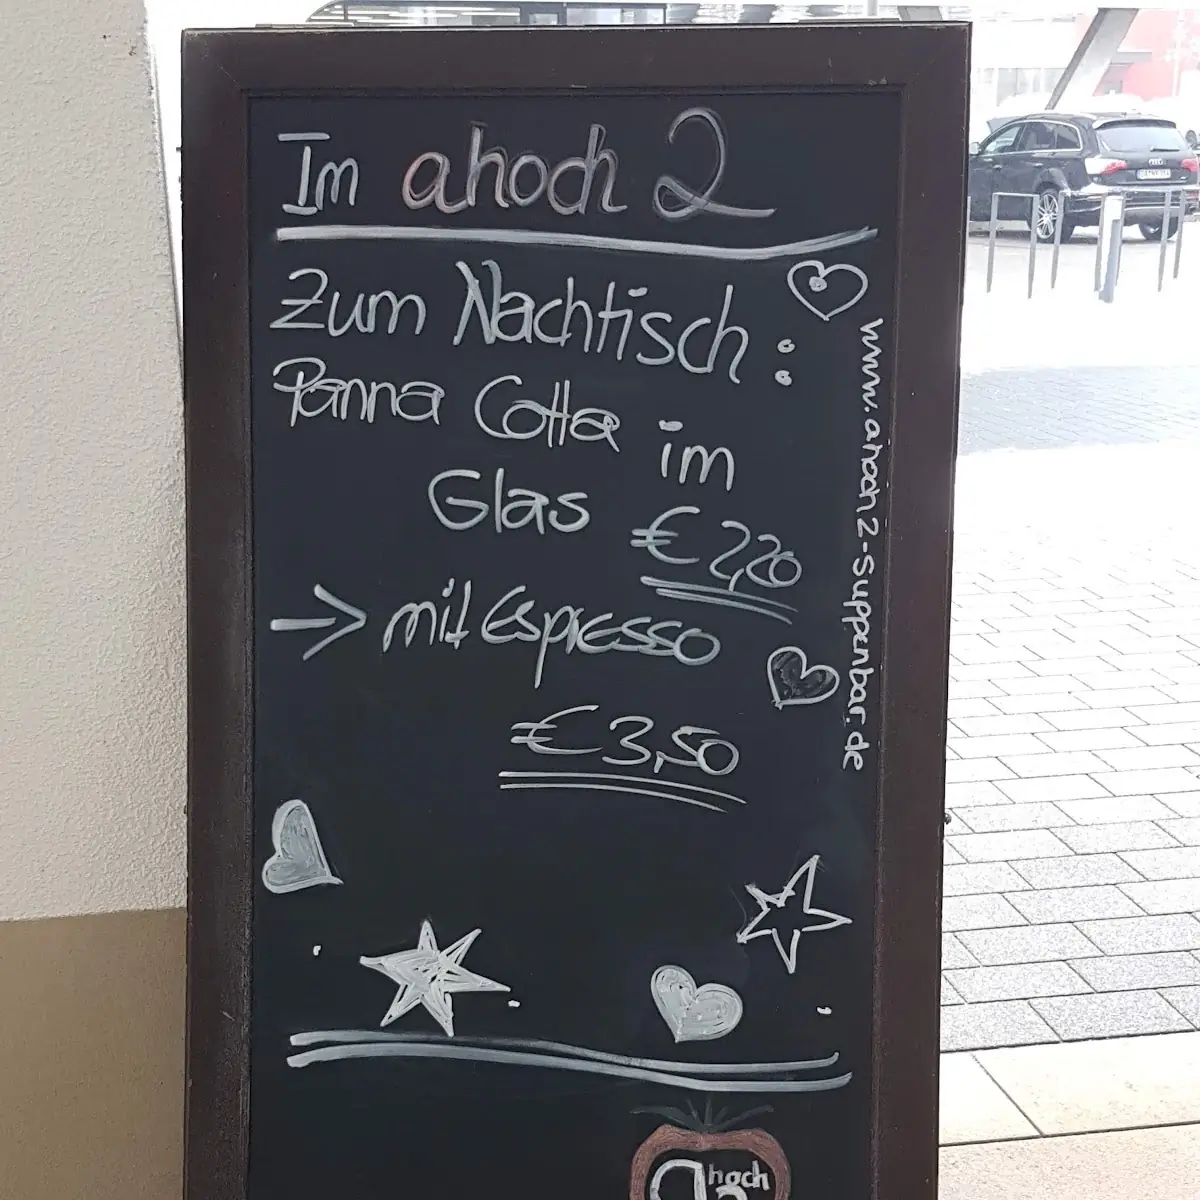 Im ahoch 2
Zum Nachtisch:
Panna Cotta im
Glas € 2,20
→ mit Espresso
€ 3,50
www.ahoch2-suppenbar.de
hoch